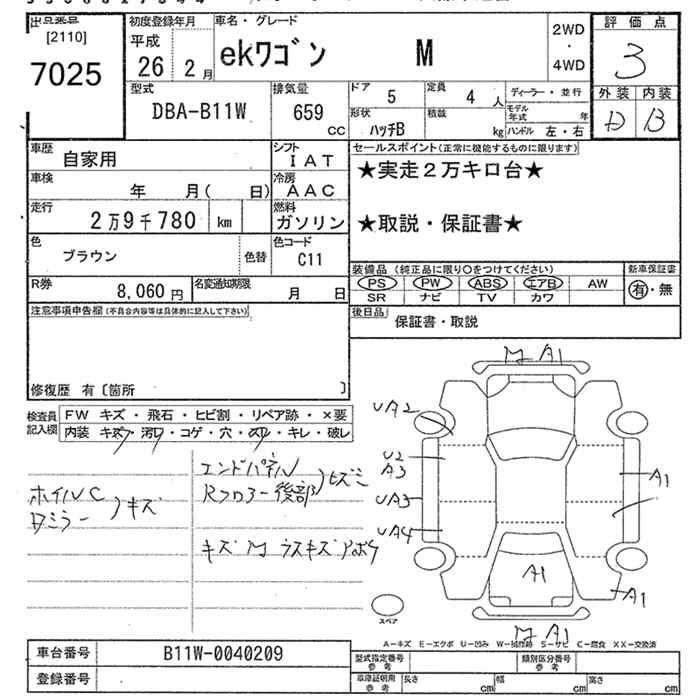 出品番号 初度登録年月 車名・グレード 評価点
[2110] 平成
7025 26 2月 ekワゴン M 2WD・4WD 3
外装 内装
D B
型式 排気量 ドア 定員 ディーラー・並行
DBA-B11W 659cc 5 4人 モデル年式 年
形状 積載
ハッチB kg ハンドル 左・右
車歴 シフト セールスポイント(正常に機能するものに限ります)
自家用 IAT ★実走2万キロ台★
車検 冷房
年 月( 日) AAC
走行 燃料
2万9千780 km ガソリン ★取説・保証書★
色 色コード
ブラウン 色替 C11
装備品(純正品に限り○をつけてください) 新車保証書
PS PW ABS エアB AW 有・無
SR ナビ TV カワ
R券 名変通知期限
8,060円 月 日
注意事項申告欄(不具合内容等は具体的に記入して下さい) 後日品
保証書・取説
修復歴 有〔箇所 〕
検査員記入欄 FW キズ・飛石・ヒビ割・リペア跡・×要
内装 キズ・汚れ・コゲ・穴・スリ・キレ・破レ
エンドパネル
Rフロアー後部 )ヒズミ
ホイルC
Dミラー )キズ
キズM
M A1
UA2
U2
A3
UA3
UA4
A1
A1
A1
M A1
スペア
A-キズ E-エクボ U-凹み W-補修跡 S-サビ C-腐食 XX-交換済
車台番号 B11W-0040209
登録番号
型式指定番号 参考 類別区分番号 参考
車庫証明用 参考 長さ cm 幅 cm 高さ cm